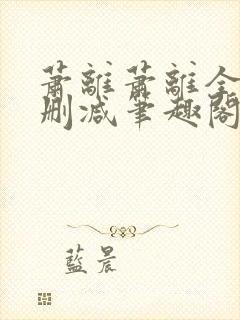 蕭離蕭離全
刪減筆趣閣
藍晨